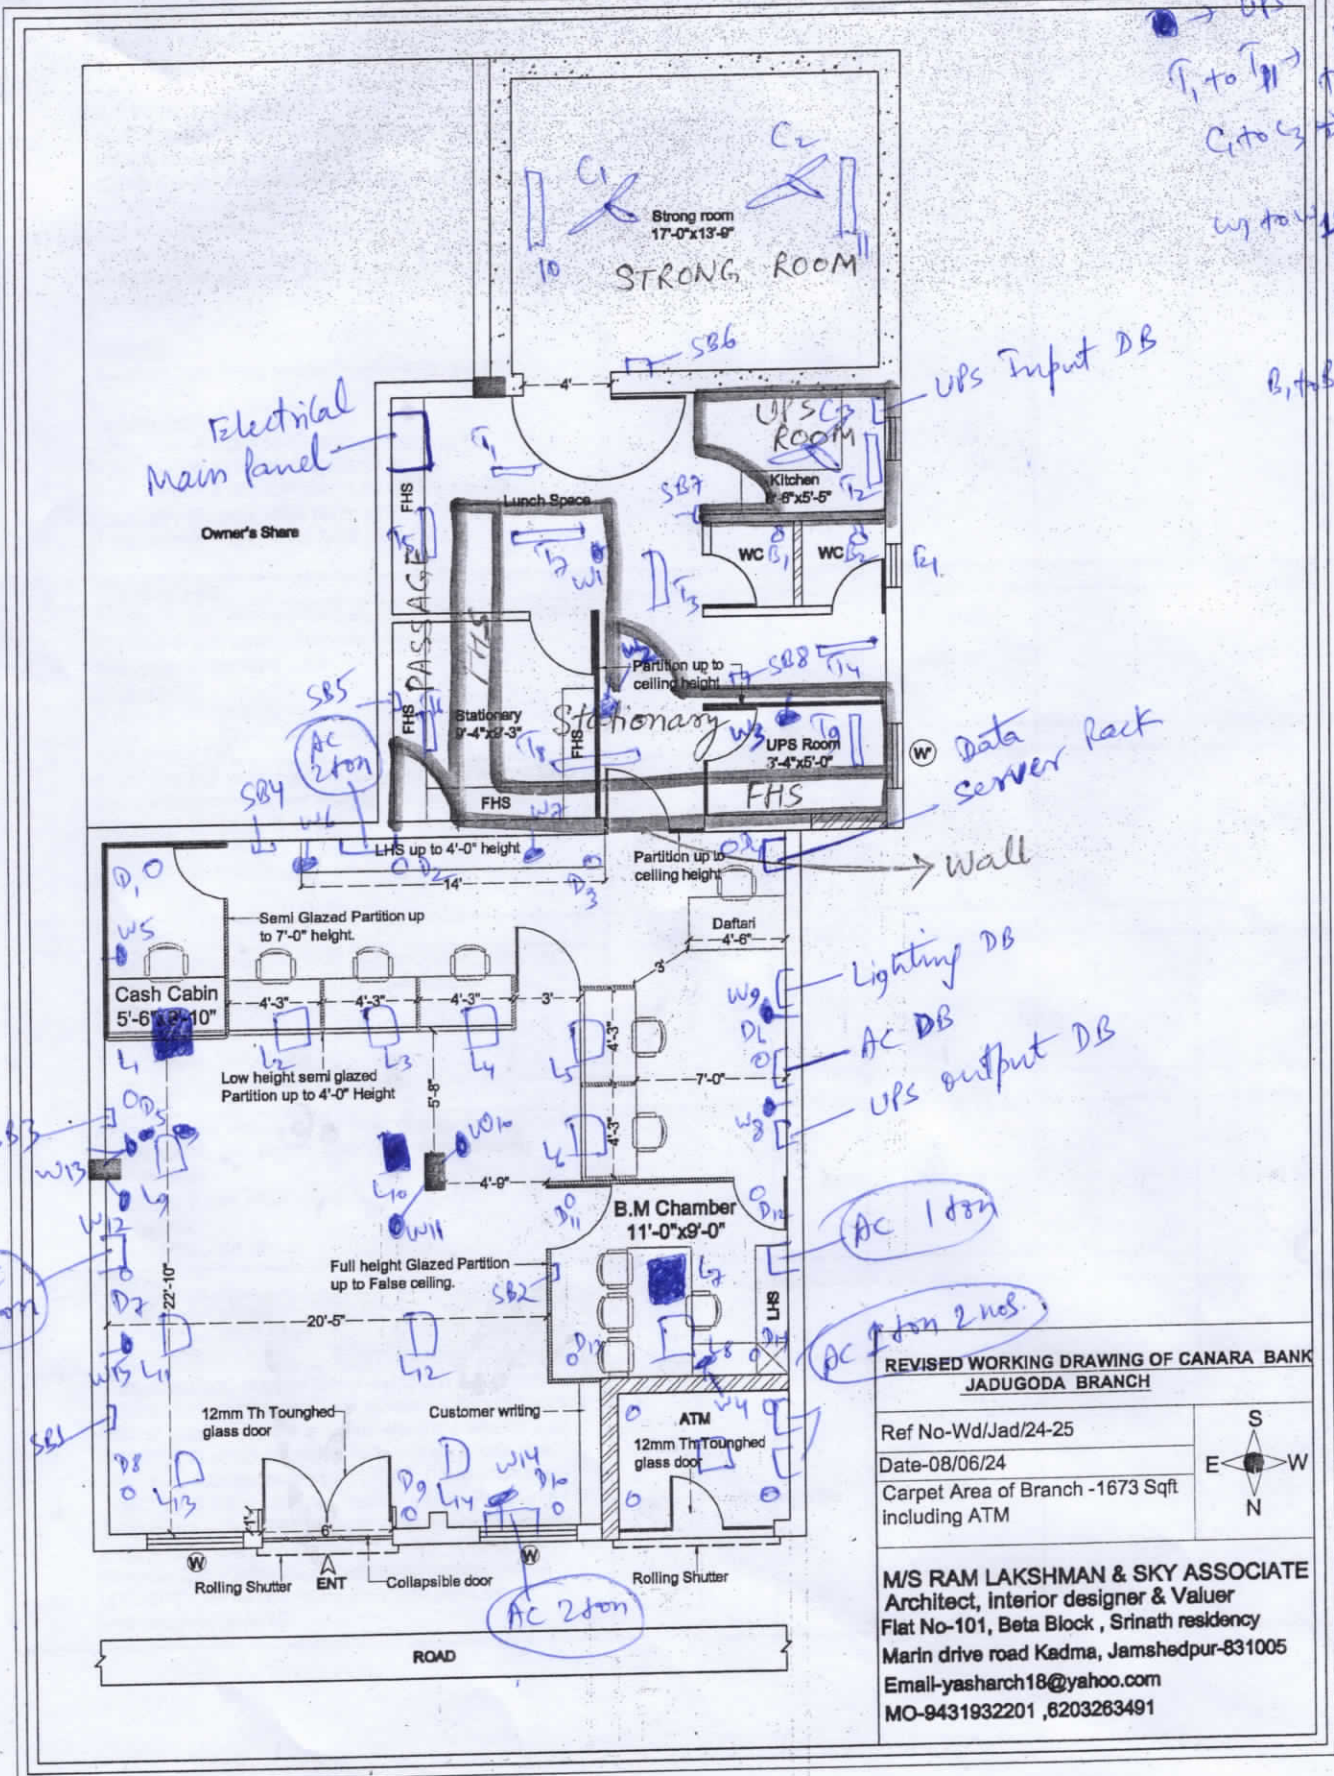 → UPS
T1 to T11 →
C1 to C3
W1 to W1
B1 to B
C1
C2
Strong room
17'-0"x13'-9"
STRONG ROOM
10
11
SB6
4'
UPS Input DB
Electrical
Main Panel
UPS C3
ROOM
T1
T2
Kitchen
'-6"x5'-5"
SB7
Lunch Space
FHS
Owner's Share
T5
T7
W1
T3
WC
B1
WC
B2
PASSAGE
FHS
Partition up to
ceiling height
SB8
T4
SB5
FHS
Stationary
9'-4"x9'-3"
Stationary
FHS
T8
W3
T9
UPS Room
3'-4"x5'-0"
W
Data
Server Rack
AC
2 ton
SB4
W6
FHS
W7
FHS
LHS up to 4'-0" height
Partition up to
ceiling height
→ Wall
D1
D2
14'
D3
W5
Semi Glazed Partition up
to 7'-0" height.
Daftari
4'-6"
3'
Lighting DB
Cash Cabin
4'-3"
4'-3"
4'-3"
3'
4'-3"
W9
D6
AC DB
L1
L2
L3
L4
L5
Low height semi glazed
Partition up to 4'-0" Height
5'-8"
7'-0"
UPS output DB
D5
W8
4'-3"
L6
W10
W13
L9
L10
4'-9"
W12
W11
D11
B.M Chamber
11'-0"x9'-0"
D12
AC 1 ton
Full height Glazed Partition
up to False ceiling.
SB2
L7
LHS
D7
22'-10"
20'-5"
W15
L11
L12
D13
L8
W4
SB1
12mm Th Tounghed
glass door
Customer writing
ATM
12mm Th Tounghed
glass door
D8
L13
D9
L14
W14
D10
1'
6'
W
Rolling Shutter
ENT
Collapsible door
W
Rolling Shutter
AC 2 ton
ROAD
REVISED WORKING DRAWING OF CANARA BANK
JADUGODA BRANCH
Ref No-Wd/Jad/24-25
Date-08/06/24
Carpet Area of Branch -1673 Sqft
including ATM
S
E
W
N
M/S RAM LAKSHMAN & SKY ASSOCIATE
Architect, interior designer & Valuer
Flat No-101, Beta Block , Srinath residency
Marin drive road Kadma, Jamshedpur-831005
Email-yasharch18@yahoo.com
MO-9431932201 ,6203263491